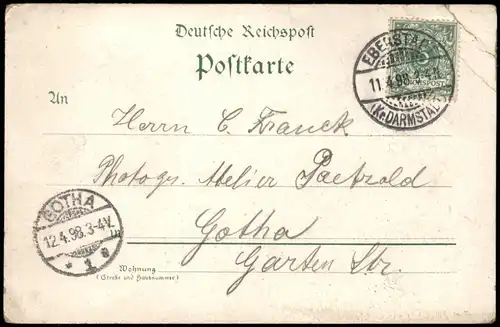 Deutsche Reichspost
Postkarte
An
Herrn C. Franck
Photogr. Atelier Paetzold
in
Gotha
Garten Str.
Wohnung
(Straße und Hausnummer)
EBERSTADT
11.4.98.3-4N.
(Kr. DARMSTADT)
GOTHA
12.4.98.3-4V.
* 1 a